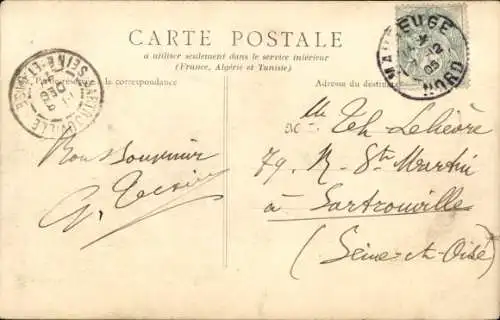 CARTE POSTALE
à utiliser seulement dans le service intérieur
(France, Algérie et Tunisie)
la correspondance
Adresse du destinataire
MAUBEUGE
12
05
NORD
SARTROUVILLE
SEINE-ET-OISE
Bon Souvenir
G.
Mlle Th Lelièvre
79, R. St Martin
à Sartrouville
(Seine-et-Oise)